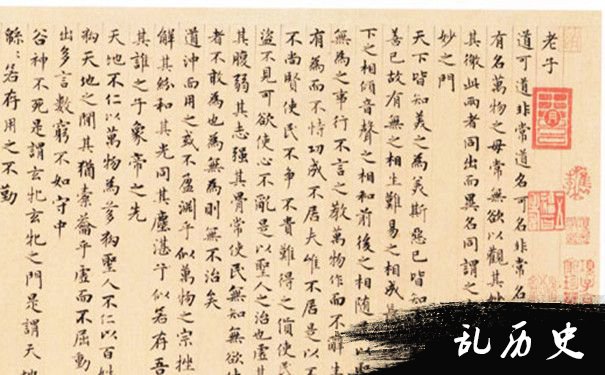 老子
道可道非常道名可名非常名
有名萬物之母常無欲以觀其
其徼此兩者同出而異名同謂之
妙之門
天下皆知美之為美斯惡已皆知
善已故有無之相生難易之相成
下之相傾音聲之相和前後之相隨
無為之事行不言之教萬物作而不辭生
有為而不恃功成不居夫唯不居是以不
不尚賢使民不爭不貴難得之貨使民
盜不見可欲使心不亂是以聖人之治也虛其
其腹弱其志强其骨常使民無知無欲使
者不敢為也為無為則無不治矣
道沖而用之或不盈淵乎似萬物之宗挫
解其紛和其光同其塵湛乎似若存吾
其誰之子象帝之先
天地不仁以萬物為芻狗聖人不仁以百姓
狗天地之間其猶橐籥乎虛而不屈動
出多言數窮不如守中
谷神不死是謂玄牝玄牝之門是謂天地
緜〻若存用之不勤
乱历史